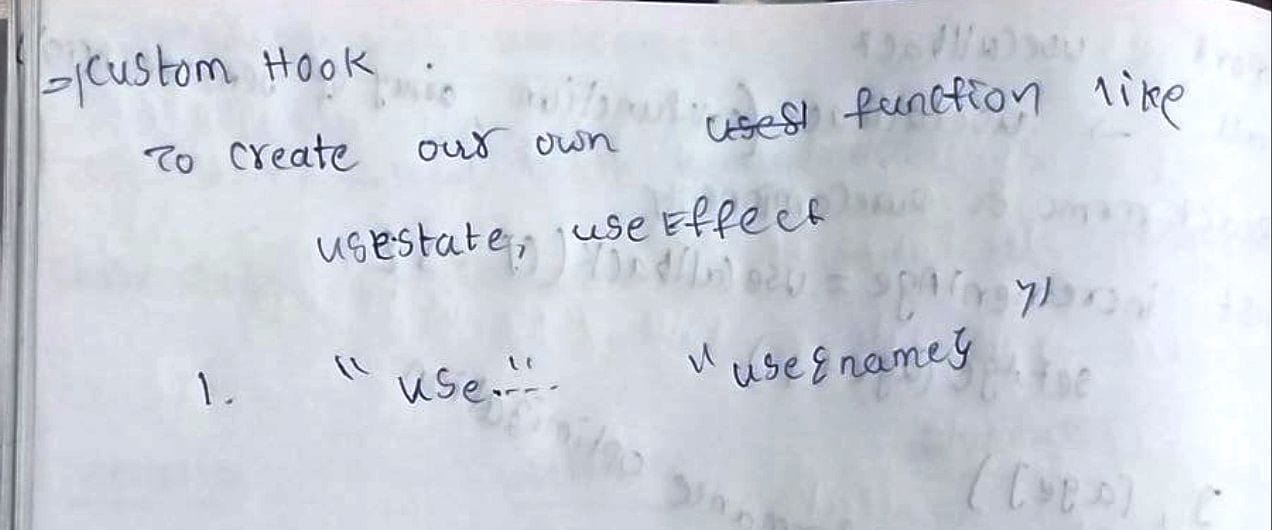 => Custom Hook
To create our own function like
usestate, useEffect
1. "use....." "use{name}"